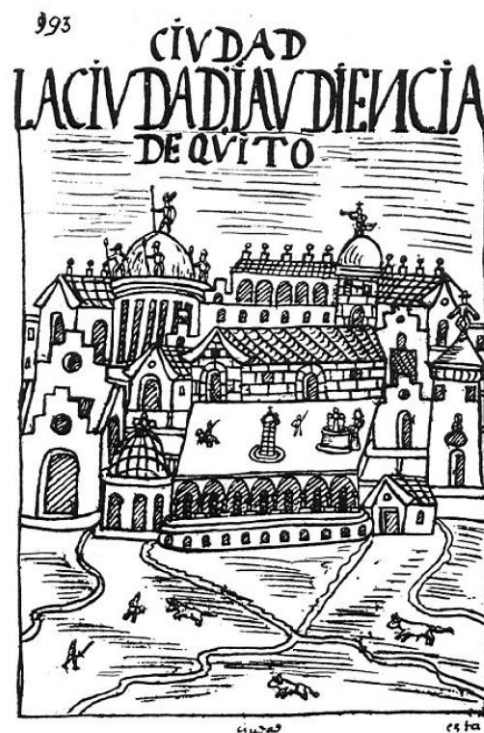 993
CIVDAD
LACIVDADIAVDIENCIA
DE QVITO
ciudad
esta